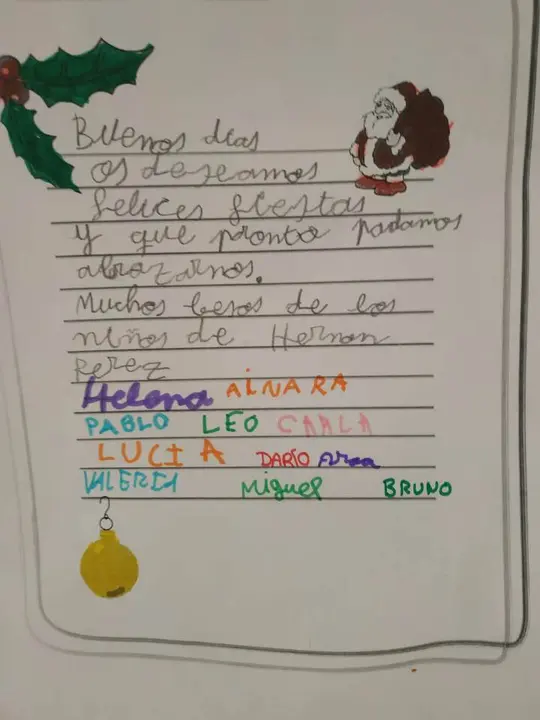 Buenos dias
os deseamos
felices fiestas
y que pronto podamos
abrazarnos.
Muchos besos de los
niños de Hernan
Perez
Helena AINARA
PABLO LEO CARLA
LUCIA DARÍO Aroa
VALERIA Miguel BRUNO